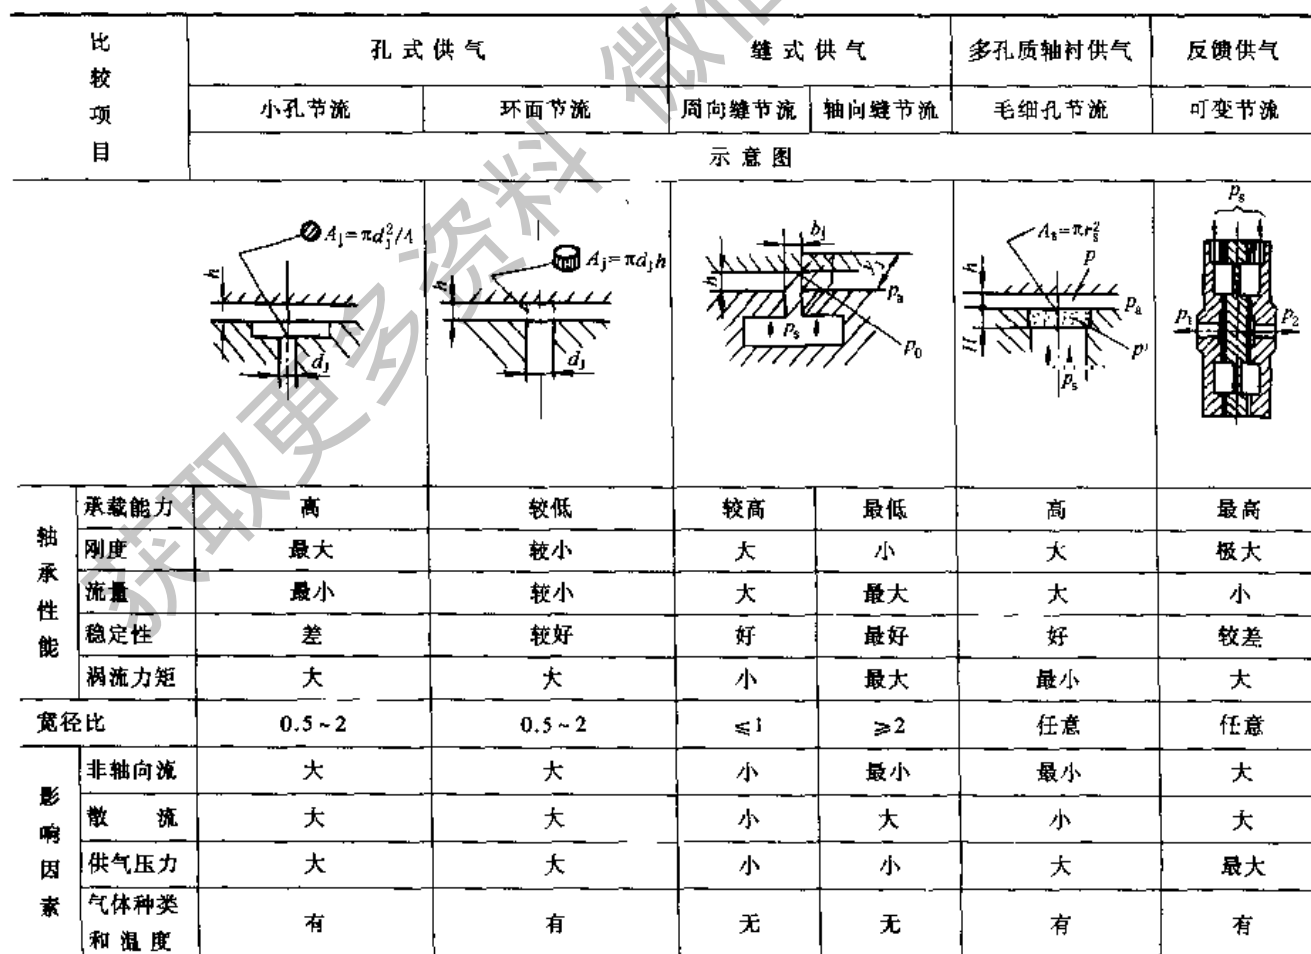 比较项目 孔式供气 缝式供气 多孔质轴衬供气 反馈供气
小孔节流 环面节流 周向缝节流 轴向缝节流 毛细孔节流 可变节流
示意图
A_j=πd_j²/4 h d_j
A_j=πd_jh h d_j
b_j h p_a p_s p_0
A_s=πr_s² p h p_a H p' p_s
p_s p_1 p_2
轴承性能
承载能力 高 较低 较高 最低 高 最高
刚度 最大 较小 大 小 大 极大
流量 最小 较小 大 最大 大 小
稳定性 差 较好 好 最好 好 较差
涡流力矩 大 大 小 最大 最小 大
宽径比 0.5~2 0.5~2 ≤1 ≥2 任意 任意
影响因素
非轴向流 大 大 小 最小 最小 大
散流 大 大 小 大 小 大
供气压力 大 大 小 小 大 最大
气体种类
和温度 有 有 无 无 有 有
获取更多资料 微信